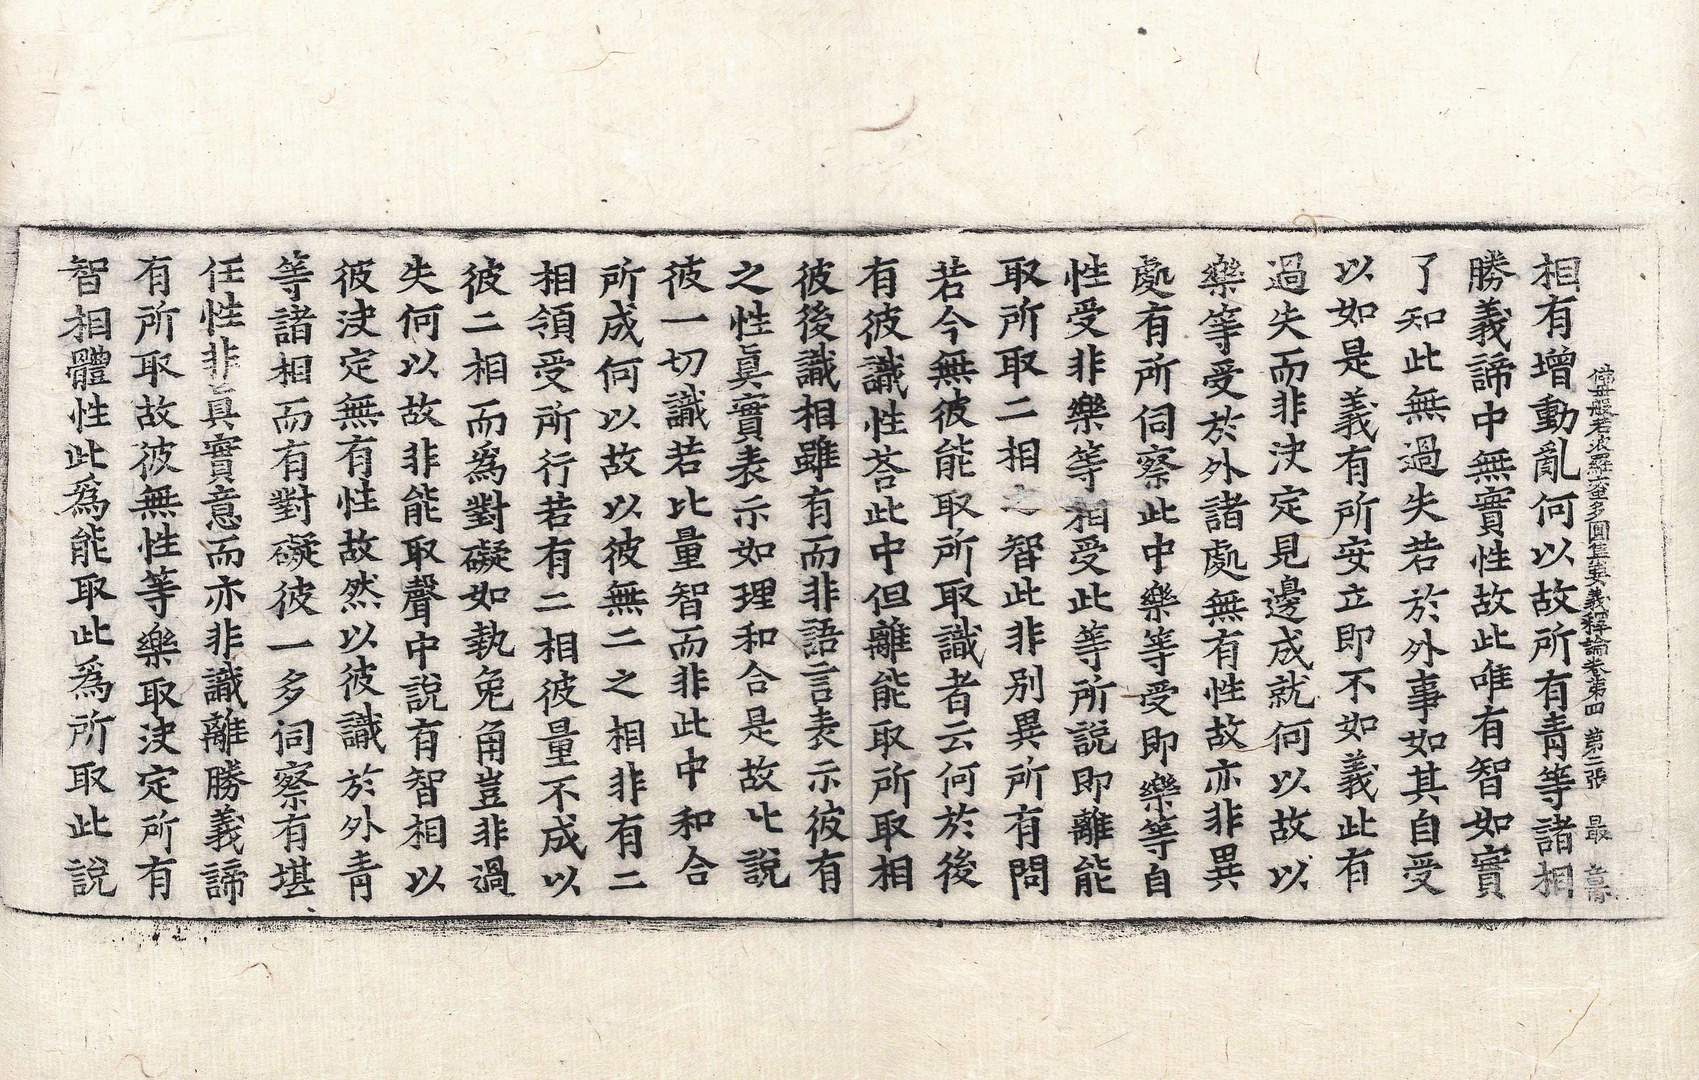 佛母般若波羅蜜多圓集要義釋論卷第四　第二張　最
相有增動亂何以故所有青等諸相
勝義諦中無實性故此唯有智如實
了知此無過失若於外事如其自受
以如是義有所安立即不如義此有
過失而非決定見邊成就何以故以
樂等受於外諸處無有性故亦非異
處有所伺察此中樂等受即樂等自
性受非樂等相受此等所說即離能
取所取二相之智此非別異所有問
若今無彼能取所取識者云何於後
有彼識性荅此中但離能取所取相
彼後識相雖有而非語言表示彼有
之性眞實表示如理和合是故此說
彼一切識若比量智而非此中和合
所成何以故以彼無二之相非有二
相領受所行若有二相彼量不成以
彼二相而爲對礙如執兔角豈非過
失何以故非能取聲中說有智相以
彼決定無有性故然以彼識於外青
等諸相而有對礙彼一多伺察有堪
任性非眞實意而亦非識離勝義諦
有所取故彼無性等樂取決定所有
智相體性此爲能取此爲所取此說